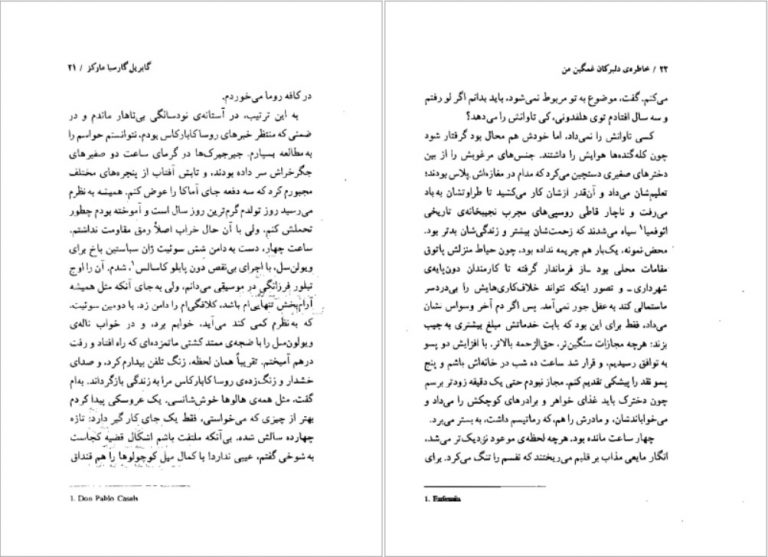 گابریل گارسیا مارکز / ۲۱
در کافه روما می‌خوردم.
به این ترتیب، در آستانه‌ی نودسالگی بی‌ناهار ماندم و در
ضمنی که منتظر خبرهای روسا کابارکاس بودم، نتوانستم حواسم را
به مطالعه بسپارم. جیرجیرک‌ها در گرمای ساعت دو صفیرهای
جگرخراش سر داده بودند، و تابش آفتاب از پنجره‌های مختلف
مجبورم کرد که سه دفعه جای آماکا را عوض کنم. همیشه به نظرم
می‌رسید روز تولدم گرم‌ترین روز سال است و آموخته بودم چطور
تحملش کنم، ولی با آن حال خراب اصلاً رمق مقاومت نداشتم.
ساعت چهار، دست به دامن شش سوئیت ژان سباستین باخ برای
ویولن‌سل، با اجرای بی‌نقص دون پابلو کاسالس۱، شدم. آن را اوج
تبلور فرزانگی در موسیقی می‌دانم، ولی به جای آنکه مثل همیشه
آرام‌بخش تنهایی‌ام باشد، کلافگی‌ام را دامن زد. با دومین سوئیت،
که به نظرم کمی کند می‌آید، خوابم برد، و در خواب ناله‌ی
ویولن‌سل را با ضجه‌ی ممتد کشتی ماتم‌زده‌ای که راه افتاد و رفت
درهم آمیختم. تقریباً همان لحظه، زنگ تلفن بیدارم کرد، و صدای
خشدار و زنگ‌زده‌ی روسا کابارکاس مرا به زندگی بازگرداند. به‌ام
گفت، مثل همه‌ی هالوها خوش‌شانسی. یک عروسکی پیدا کردم
بهتر از چیزی که می‌خواستی، فقط یک جای کار گیر دارد: تازه
چهارده سالش شده. بی‌آنکه ملتفت باشم اشکال قضیه کجاست
به شوخی گفتم، عیبی ندارد! با کمال میل کوچولوها را هم قنداق
1. Don Pablo Casals
۲۲ / خاطره‌ی دلبرکان غمگین من
می‌کنم. گفت، موضوع به تو مربوط نمی‌شود، باید بدانم اگر لو رفتم
و سه سال افتادم توی هلفدونی، کی تاوانش را می‌دهد؟
کسی تاوانش را نمی‌داد، اما خودش هم محال بود گرفتار شود
چون کله‌گنده‌ها هوایش را داشتند. جنس‌های مرغوبش را از بین
دخترهای صغیری دستچین می‌کرد که مدام در مغازه‌اش پلاس بودند؛
تعلیم‌شان می‌داد و آن‌قدر ازشان کار می‌کشید تا طراوتشان به باد
می‌رفت و ناچار قاطی روسپی‌های مجرب نجیبخانه‌ی تاریخی
ائوفمیا۱ سیاه می‌شدند که زحمت‌شان بیشتر و زندگی‌شان بدتر بود.
محض نمونه، یک‌بار هم جریمه نداده بود، چون حیاط منزلش پاتوق
مقامات محلی بود ـ از فرماندار گرفته تا کارمندان دون‌پایه‌ی
شهرداری ـ و تصور اینکه نتواند خلاف‌کاری‌هایش را بی‌دردسر
ماستمالی کند به عقل جور نمی‌آمد. پس اگر دم آخر وسواس نشان
می‌داد، فقط برای این بود که بابت خدماتش مبلغ بیشتری به جیب
بزند: هرچه مجازات سنگین‌تر، حق‌الزحمه بالاتر. با افزایش دو پسو
به توافق رسیدیم، و قرار شد ساعت ده شب در خانه‌اش باشم و پنج
پسو نقد را پیشکی تقدیم کنم. مجاز نبودم حتی یک دقیقه زودتر برسم
چون دخترک باید غذای خواهر و برادرهای کوچکش را می‌داد و
می‌خواباندشان، و مادرش را هم، که رماتیسم داشت، به بستر می‌برد.
چهار ساعت مانده بود. هرچه لحظه‌ی موعود نزدیک‌تر می‌شد،
انگار مایعی مذاب بر قلبم می‌ریختند که نفسم را تنگ می‌کرد. برای
1. Eufemia